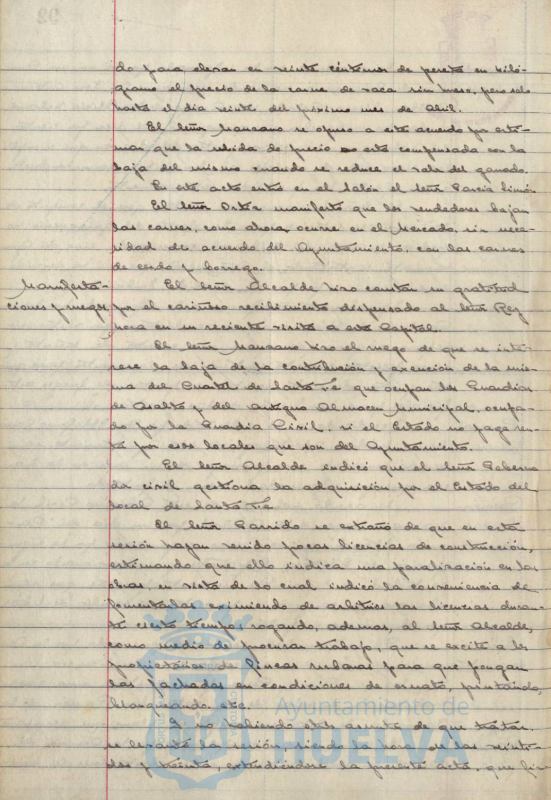 do para elevar en veinte céntimos de peseta en kiló-
gramo el precio de la carne de vaca sin hueso, pero solo
hasta el día veinte del próximo mes de Abril.
El Señor Manzano se opuso a este acuerdo por esti-
mar que la subida de precio está compensada con la
baja del mismo cuando se reduce el valor del ganado.
En este acto entró en el Salón el Señor García Limón
El Señor Ortiz manifestó que los vendedores bajan
las carnes, como ahora ocurre en el Mercado, sin nece-
sidad de acuerdo del Ayuntamiento, con las carnes
de cerdo y borrego.
Manifesta-
ciones y ruegos
El Señor Alcalde hizo constar su gratitud
por el cariñoso recibimiento dispensado al Señor Rey
noca en su reciente visita a esta Capital.
El Señor Manzano hizo el ruego de que se inte-
rese la baja de la contribución y exención de la mis-
ma del Cuartel de Santa Fe que ocupan los Guardias
de Asalto y del antiguo Almacén Municipal, ocupa-
do por la Guardia Civil, si el Estado no paga ren-
ta por esos locales que son del Ayuntamiento.
El Señor Alcalde indicó que el Señor Goberna
dor civil gestiona la adquisición por el Estado del
local de Santa Fe
El Señor Garrido se extrañó de que en esta
sesión hayan venido pocas licencias de construcción,
estimando que ello indica una paralización en las
obras en vista de lo cual indicó la conveniencia de
fomentarlas eximiendo de arbitrios las licencias duran-
te cierto tiempo, rogando, además, al Señor Alcalde,
como medio de procurar trabajo, que se excite a los
propietarios de fincas urbanas para que pongan
las fachadas en condiciones de ornato, pintando,
blanqueando, etc.
Y no habiendo otro asunto de que tratar,
se levantó la sesión, siendo la hora de las veinti-
dos y treinta, extendiéndose la presente acta, que fir-
Ayuntamiento de
HUELVA